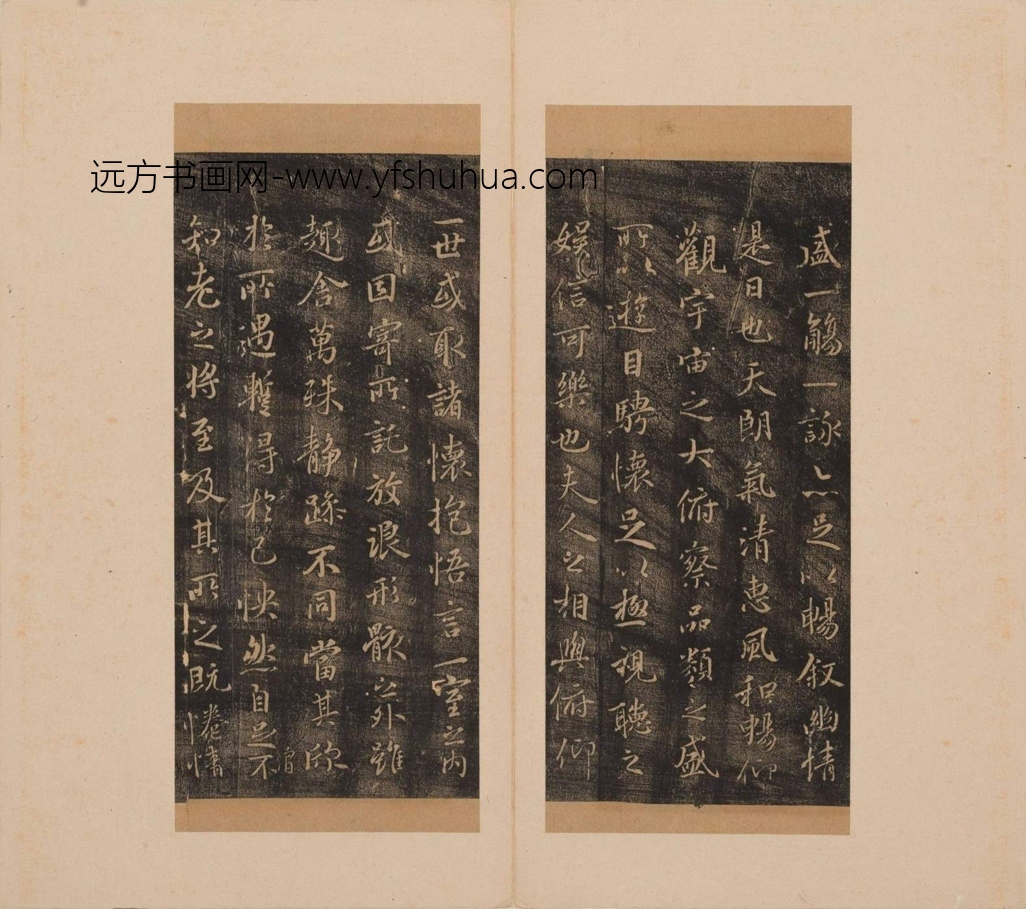 远方书画网-www.yfshuhua.com
盛一觴一詠亦足以暢叙幽情
是日也天朗氣清惠風和暢仰
觀宇宙之大俯察品類之盛
所以遊目騁懷足以極視聽之
娛信可樂也夫人之相與俯仰
一世或取諸懷抱悟言一室之內
或因寄所託放浪形骸之外雖
趣舍萬殊静躁不同當其欣
於所遇暫得於己怏然自足不
知老之將至及其所之既惓情